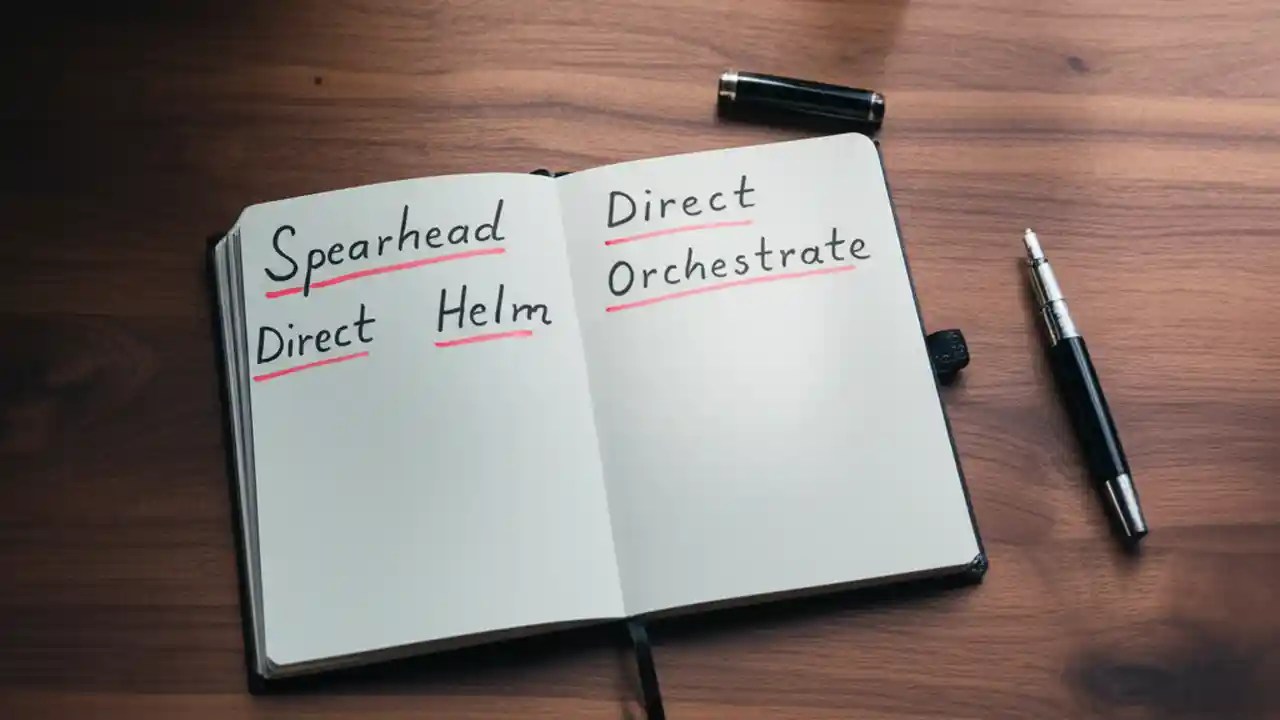 Spearhead
Direct Helm
Direct
Orchestrate